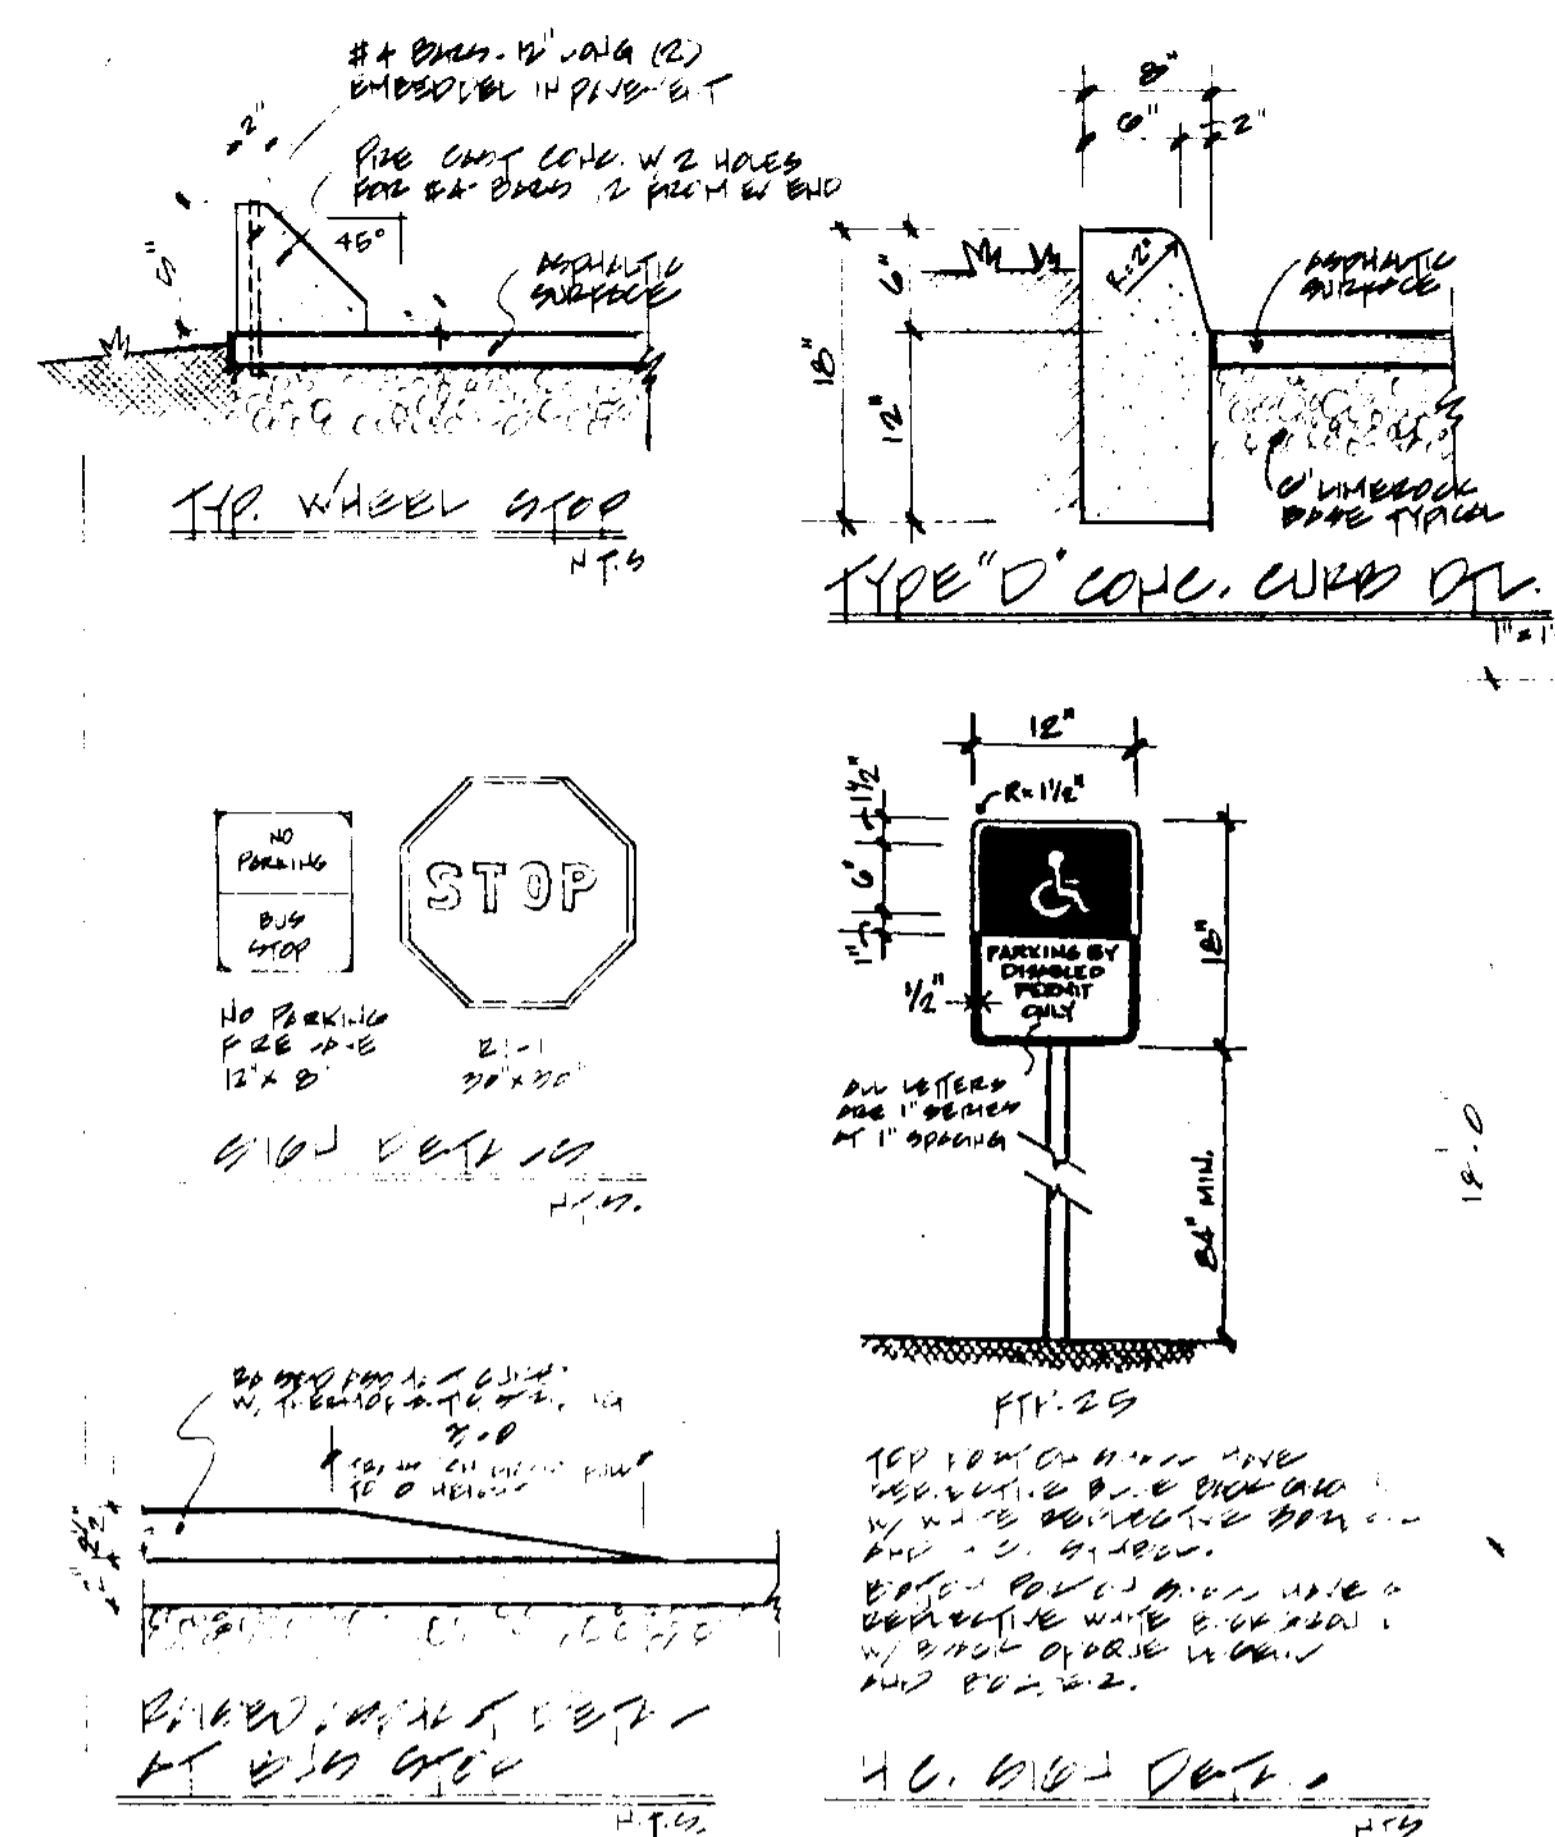 #4 BARS - 12" LONG (2)
EMBEDDED IN PAVEMENT
PRE CAST CONC. W/2 HOLES
FOR #4 BARS 12 FROM EA END
2"
5"
45°
ASPHALTIC
SURFACE
TYP. WHEEL STOP
N.T.S
8"
6"
2"
R=2"
18"
6"
12"
ASPHALTIC
SURFACE
6" LIMEROCK
BASE TYPICAL
TYPE "D" CONC. CURB DTL.
1" = 1'
NO
PARKING
BUS
STOP
STOP
NO PARKING
12" x 8"
R1-1
30"x30"
SIGN DETAILS
N.T.S.
12"
R=1 1/2"
1 1/2"
6"
1"
1/2"
18"
84" MIN.
PARKING BY
DISABLED
PERMIT
ONLY
ALL LETTERS
ARE 1" SERIES
AT 1" SPACING
FTP-25
TOP PORTION SHALL HAVE
REFLECTIVE BLUE
W/ WHITE REFLECTIVE
AND SYMBOL.
BOTTOM PORTION SHALL HAVE A
REFLECTIVE WHITE
W/ BLACK OPAQUE LEGEND
AND BORDER.
H.C. SIGN DETAIL
NTS
3-0
TO 0 HEIGHT
RAISED ASPHALT DETAIL
AT BUS STOP
N.T.S.